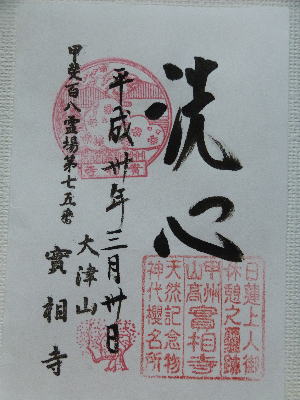 洗心
平成卅年三月卅日
甲斐百八霊場第七五番
大津山
實相寺
日蓮上人御
休憩之霊跡
甲州
山高
實相寺
天然記念物
神代櫻名所